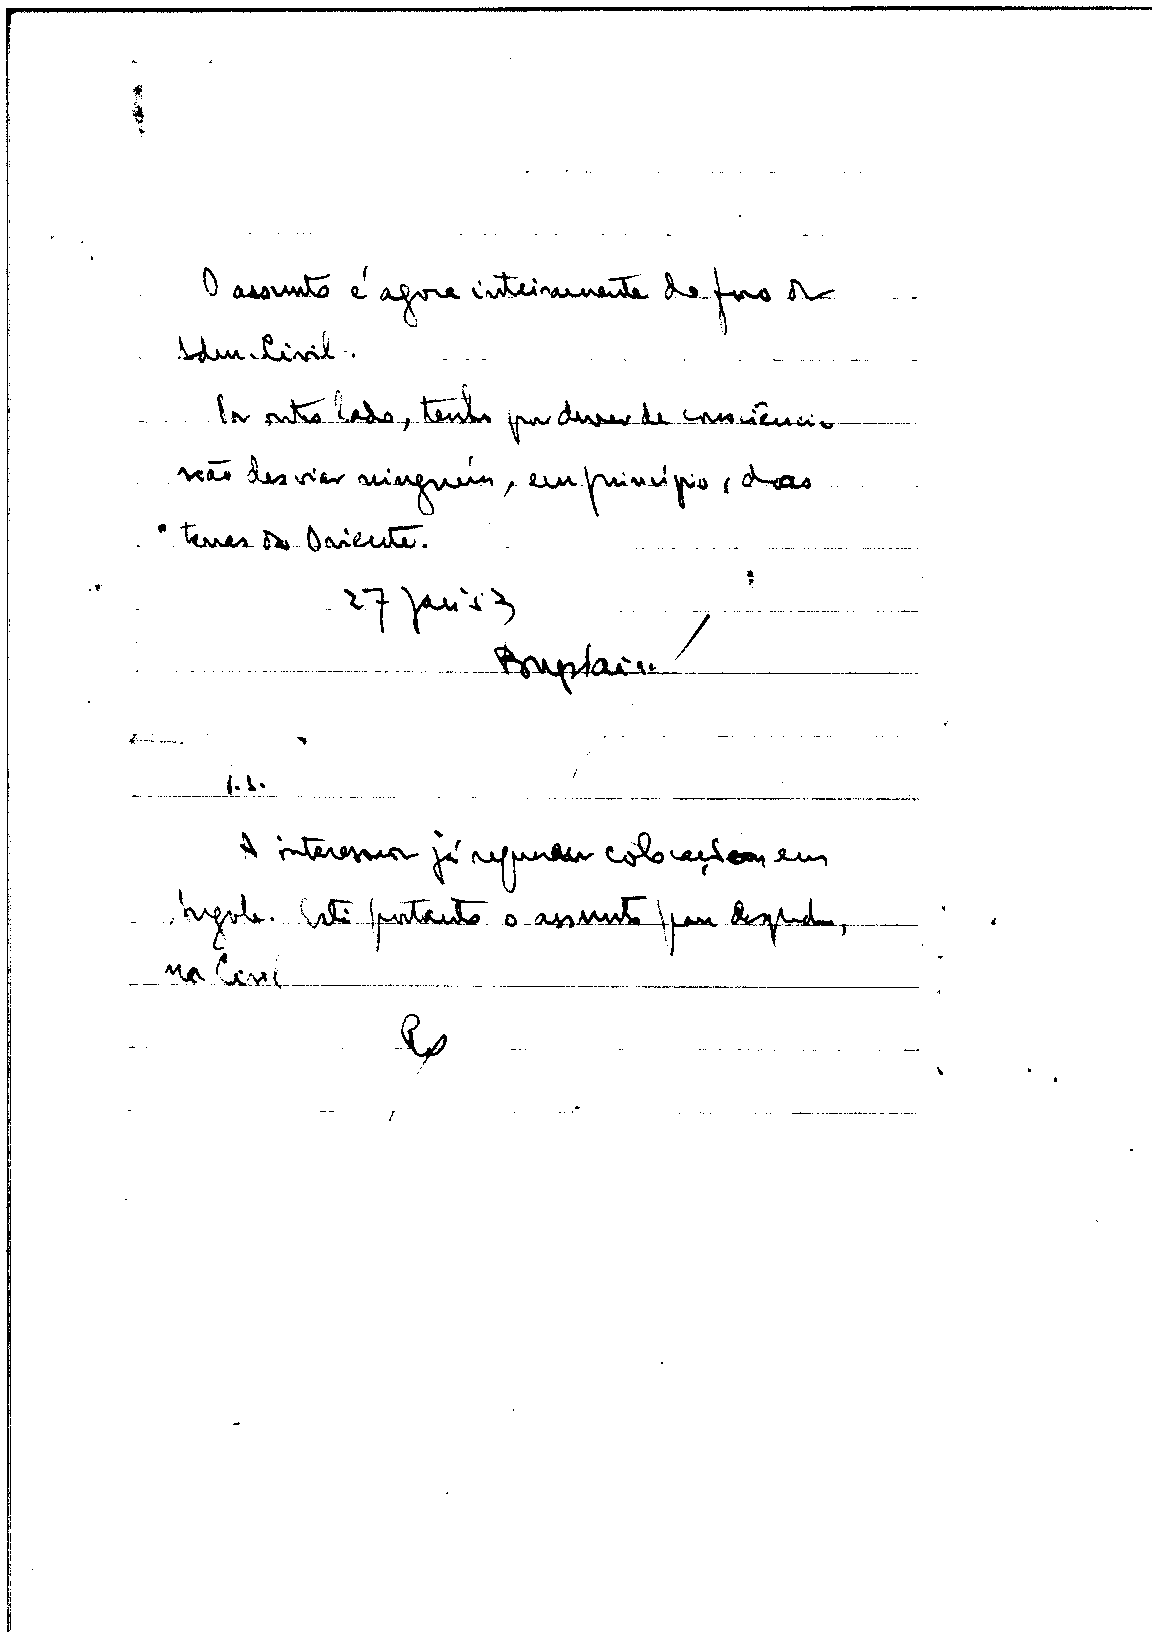 O assunto é agora inteiramente do foro da
Adm. Civil.
Por outro lado, tenho por dever de consciência
não desviar ninguém, em princípio, das
terras do Oriente.
27 Jan 53
P.S.
A interessada já requereu colocação em
Angola. Está portanto o assunto para despacho,
na Civil